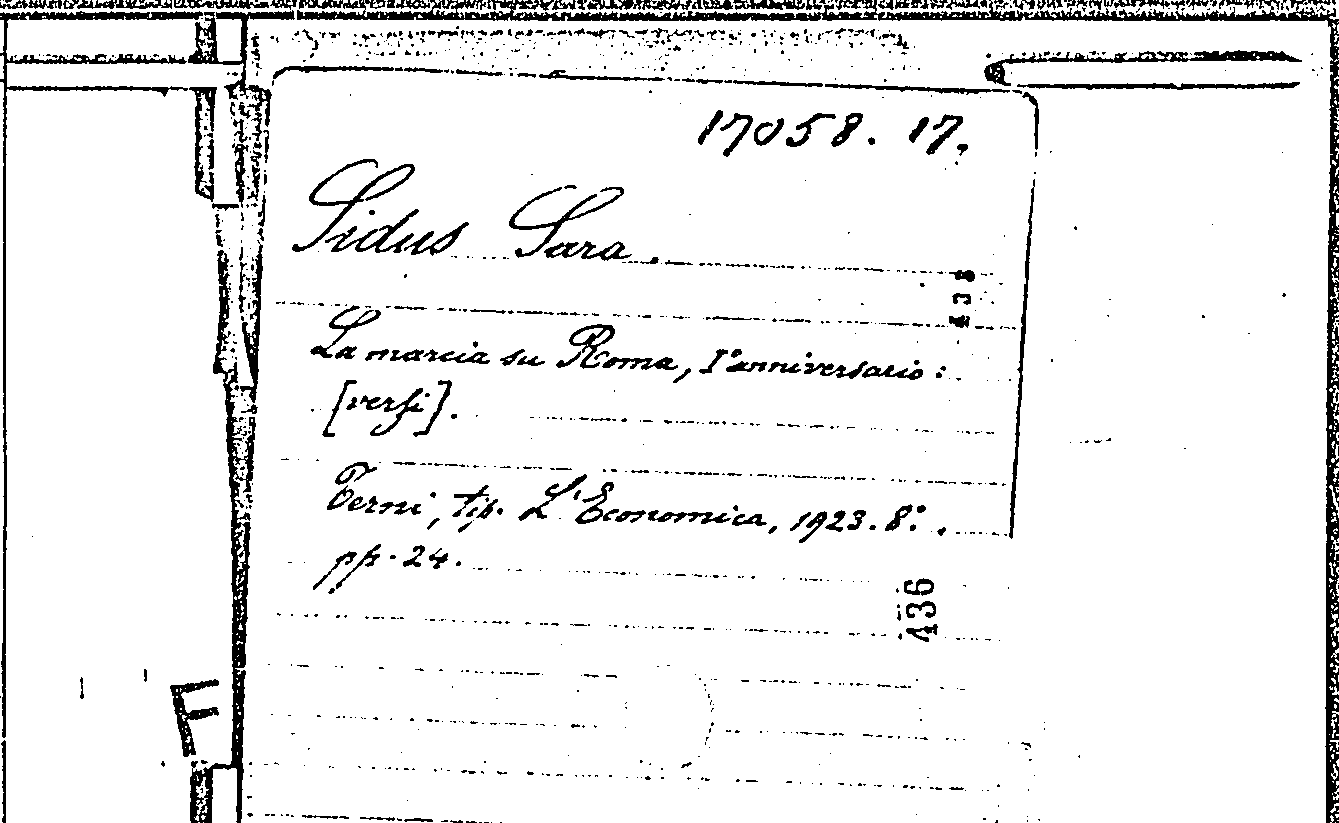 17058. 17.
Sidus Sara.
438
La marcia su Roma, I° anniversario:
[versi].
Terni, tip. L'Economica, 1923. 8°.
pp. 24.
436
F